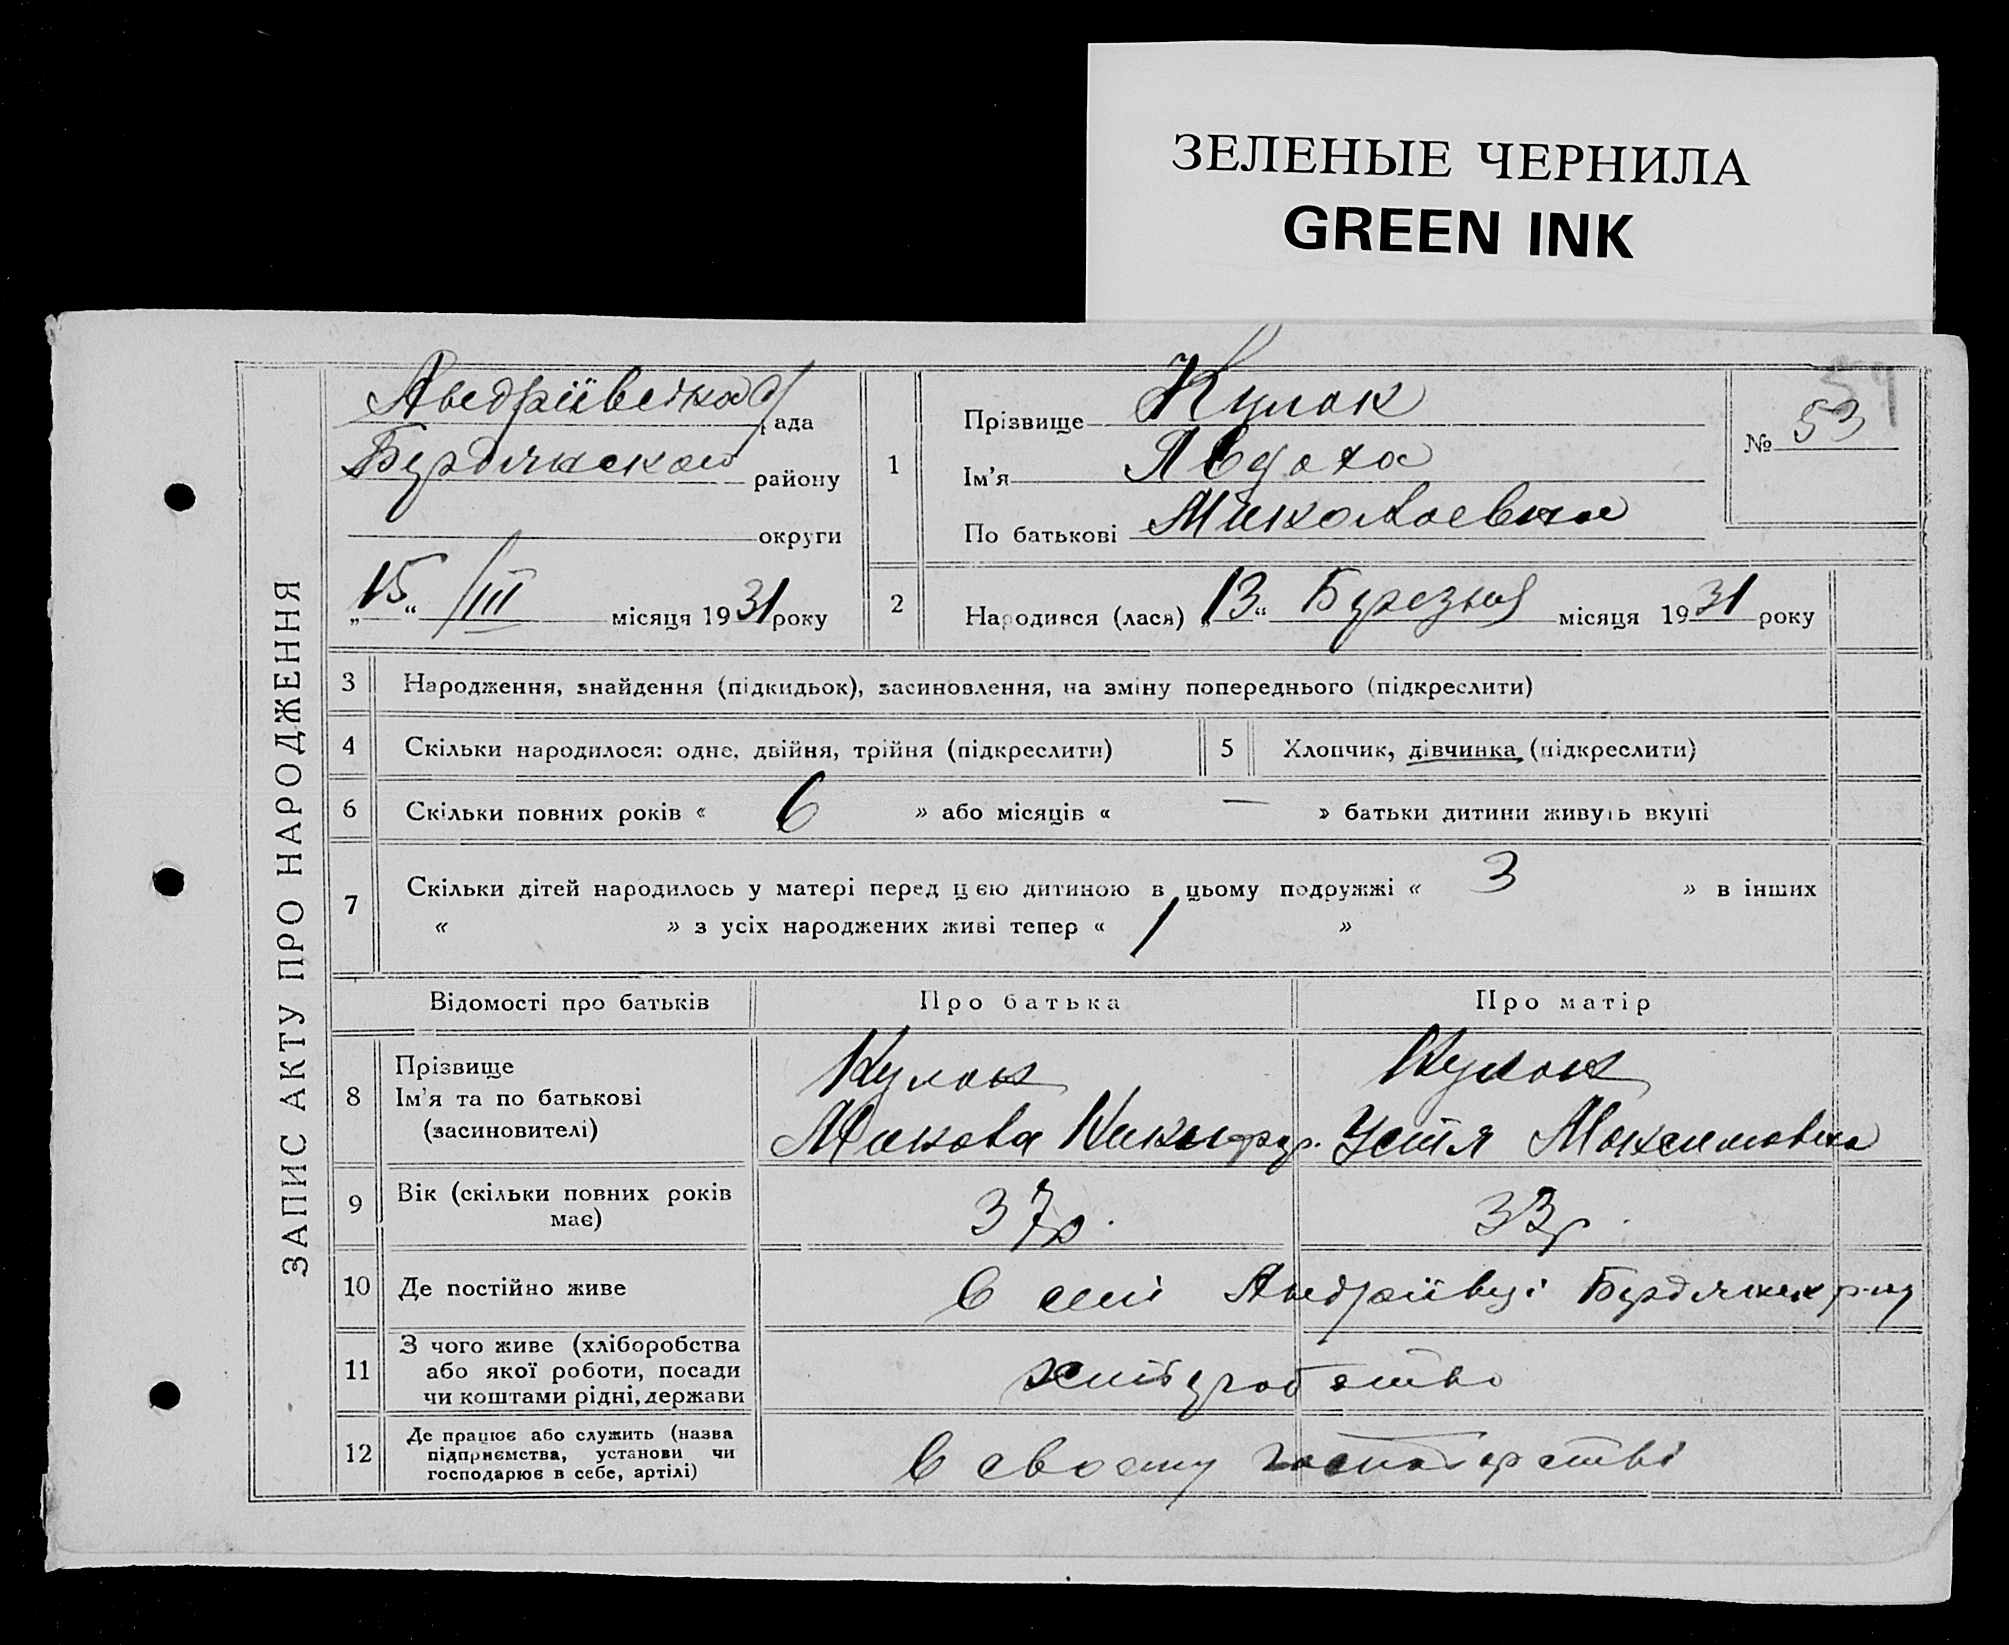 ЗЕЛЕНЫЕ ЧЕРНИЛА
GREEN INK
ЗАПИС АКТУ ПРО НАРОДЖЕННЯ
Андріївська рада
Бердянском району
округи
„15“ /III місяця 1931 року
1
Прізвище Кулак
Ім'я Явдоха
По батькові Миколаевна
54
№ 53
2
Народився (лася) „13“ Березня місяця 1931 року
3 Народження, знайдення (підкидьок), засиновлення, на зміну попереднього (підкреслити)
4 Скільки народилося: одне, двійня, трійня (підкреслити)
5 Хлопчик, дівчинка (підкреслити)
6 Скільки повних років « 6 » або місяців « — » батьки дитини живуть вкупі
7 Скільки дітей народилось у матері перед цєю дитиною в цьому подружжі « 3 » в інших
« » з усіх народжених живі тепер « 1 »
Відомості про батьків Про батька Про матір
8 Прізвище
Ім'я та по батькові
(засиновителі)
Кулак
Микола
Кулак
Устя Максимовна
9 Вік (скільки повних років
має)
37р.
33р.
10 Де постійно живе
в селі Андріївці р-ну
11 З чого живе (хліборобства
або якої роботи, посади
чи коштами рідні, держави
12 Де працює або служить (назва
підприємства, установи чи
господарює в себе, артілі)
в своему господарстві